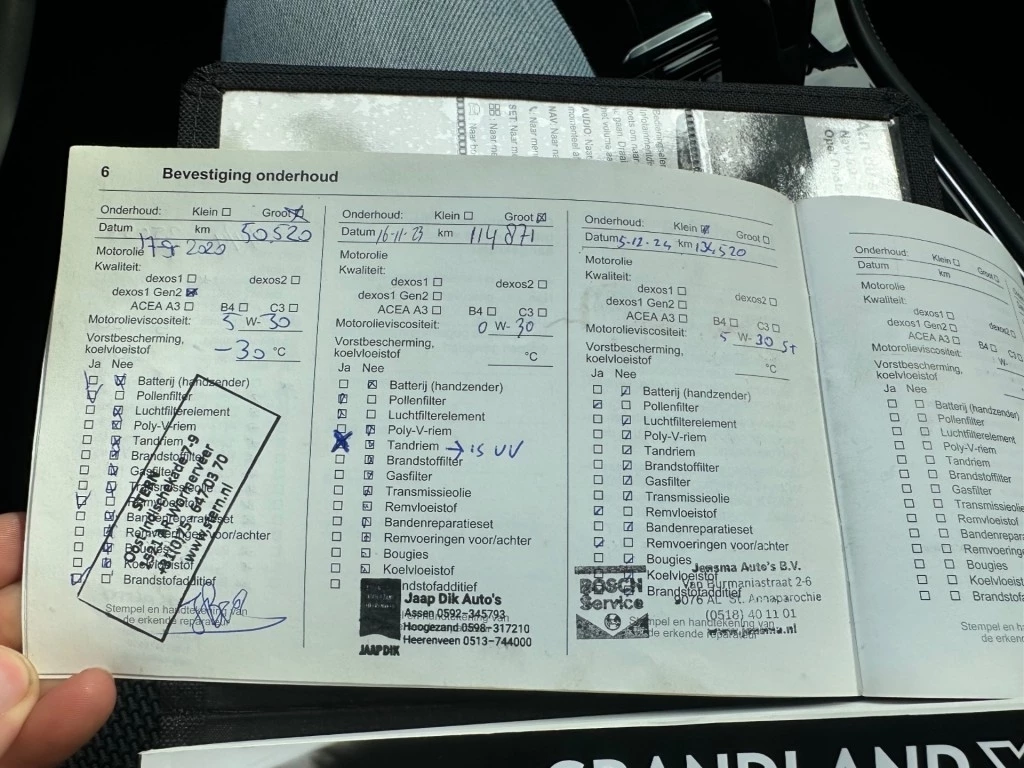 6 Bevestiging onderhoud
Onderhoud: Klein Groot
Datum km 50.520
2020
Motorolie
Kwaliteit:
dexos1 dexos2
dexos1 Gen2
ACEA A3 B4 C3
Motorolieviscositeit: 5 W- 30
Vorstbescherming,
koelvloeistof -30 °C
Ja Nee
Batterij (handzender)
Pollenfilter
Luchtfilterelement
Poly-V-riem
Tandriem
Brandstoffilter
Gasfilter
Transmissieolie
Remvloeistof
Bandenreparatieset
Remvoeringen voor/achter
Bougies
Koelvloeistof
Brandstofadditief
STERN
www.stern.nl
Stempel en handtekening van
de erkende reparateur
Onderhoud: Klein Groot
Datum 16-11-23 km 114871
Motorolie
Kwaliteit:
dexos1 dexos2
dexos1 Gen2
ACEA A3 B4 C3
Motorolieviscositeit: 0 W- 30
Vorstbescherming,
koelvloeistof °C
Ja Nee
Batterij (handzender)
Pollenfilter
Luchtfilterelement
Poly-V-riem
Tandriem → is VV
Brandstoffilter
Gasfilter
Transmissieolie
Remvloeistof
Bandenreparatieset
Remvoeringen voor/achter
Bougies
Koelvloeistof
ndstofadditief
Jaap Dik Auto's
Assen 0592-345793
Hoogezand 0598-317210
Heerenveen 0513-744000
JAAP DIK
Onderhoud: Klein Groot
Datum 5-12-24 km 134,520
Motorolie
Kwaliteit:
dexos1 dexos2
dexos1 Gen2
ACEA A3 B4 C3
Motorolieviscositeit: 5 W- 30 st
Vorstbescherming,
koelvloeistof °C
Ja Nee
Batterij (handzender)
Pollenfilter
Luchtfilterelement
Poly-V-riem
Tandriem
Brandstoffilter
Gasfilter
Transmissieolie
Remvloeistof
Bandenreparatieset
Remvoeringen voor/achter
Bougies
Koelvloeistof
Brandstofadditief
BOSCH
Service
Jensma Auto's B.V.
Van Burmaniastraat 2-6
9076 AL St. Annaparochie
(0518) 40 11 01
www.jensma.nl
Stempel en handtekening van
de erkende reparateur
Onderhoud: Klein Groot
Datum km
Motorolie
Kwaliteit:
dexos1 dexos2
dexos1 Gen2
ACEA A3 B4 C3
Motorolieviscositeit: W-
Vorstbescherming,
koelvloeistof °C
Ja Nee
Batterij (handzender)
Pollenfilter
Luchtfilterelement
Poly-V-riem
Tandriem
Brandstoffilter
Gasfilter
Transmissieolie
Remvloeistof
Bandenrepara
Remvoeringe
Bougies
Koelvloeist
Brandstofa
Stempel en
de erken
GRANDLAND X